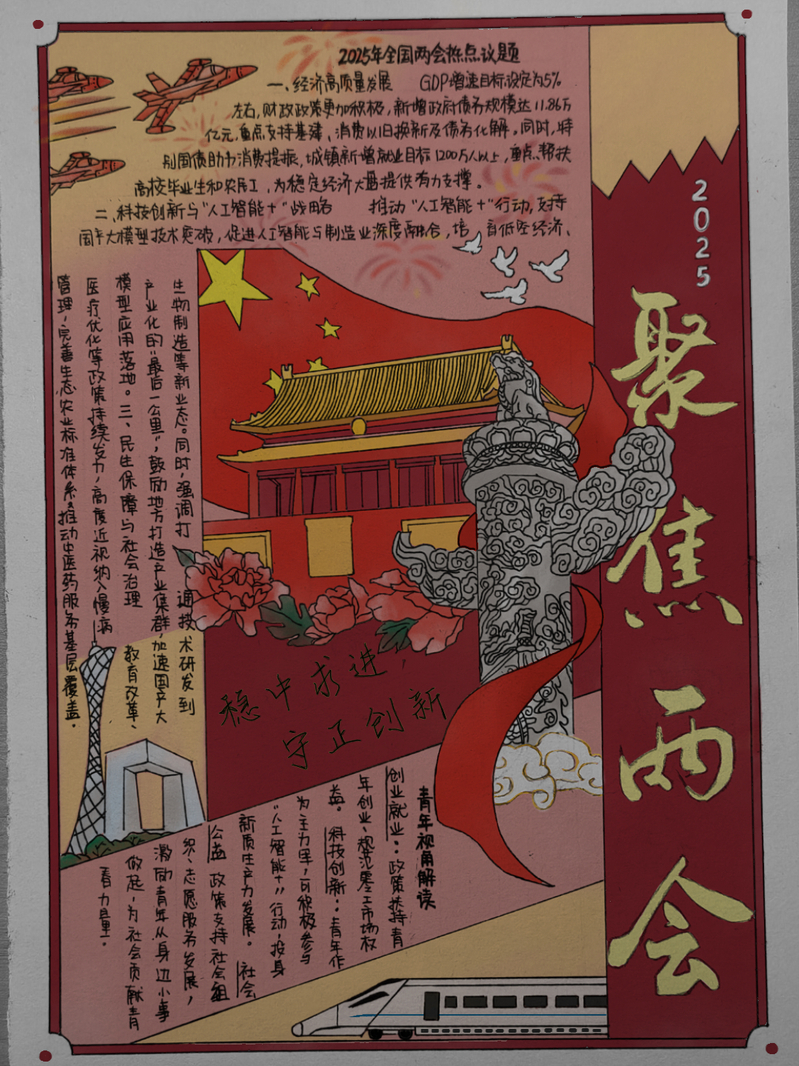 2025年全国两会热点议题
一、经济高质量发展 GDP增速目标设定为5%
左右，财政政策更加积极，新增政府债务规模达11.86万
亿元，重点支持基建、消费以旧换新及债务化解。同时，特
别国债助力消费提振，城镇新增就业目标1200万人以上，重点帮扶
高校毕业生和农民工，为稳定经济大盘提供有力支撑。
二、科技创新与“人工智能+”战略 推动“人工智能+”行动，支持
国产大模型技术突破，促进人工智能与制造业深度融合，培育低空经济、
生物制造等新业态。同时，强调打通技术研发到
产业化的“最后一公里”，鼓励地方打造产业集群，加速国产大
模型应用落地。三、民生保障与社会治理 教育改革、
医疗优化等政策持续发力，高度近视纳入慢病
管理，完善生态农业标准体系，推动中医药服务基层覆盖。
2025
聚焦两会
稳中求进，
守正创新
青年视角解读
创业就业：政策扶持青
年创业、规范零工市场权
益。科技创新：青年作
为主力军，可积极参与
“人工智能+”行动，投身
新质生产力发展。社会
公益 政策支持社会组
织、志愿服务发展，
激励青年从身边小事
做起，为社会贡献青
春力量。